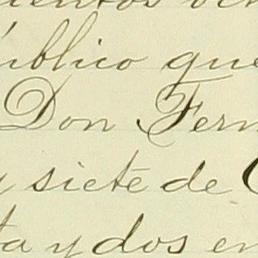 público que
Don Fern
y siete de
ta y dos en